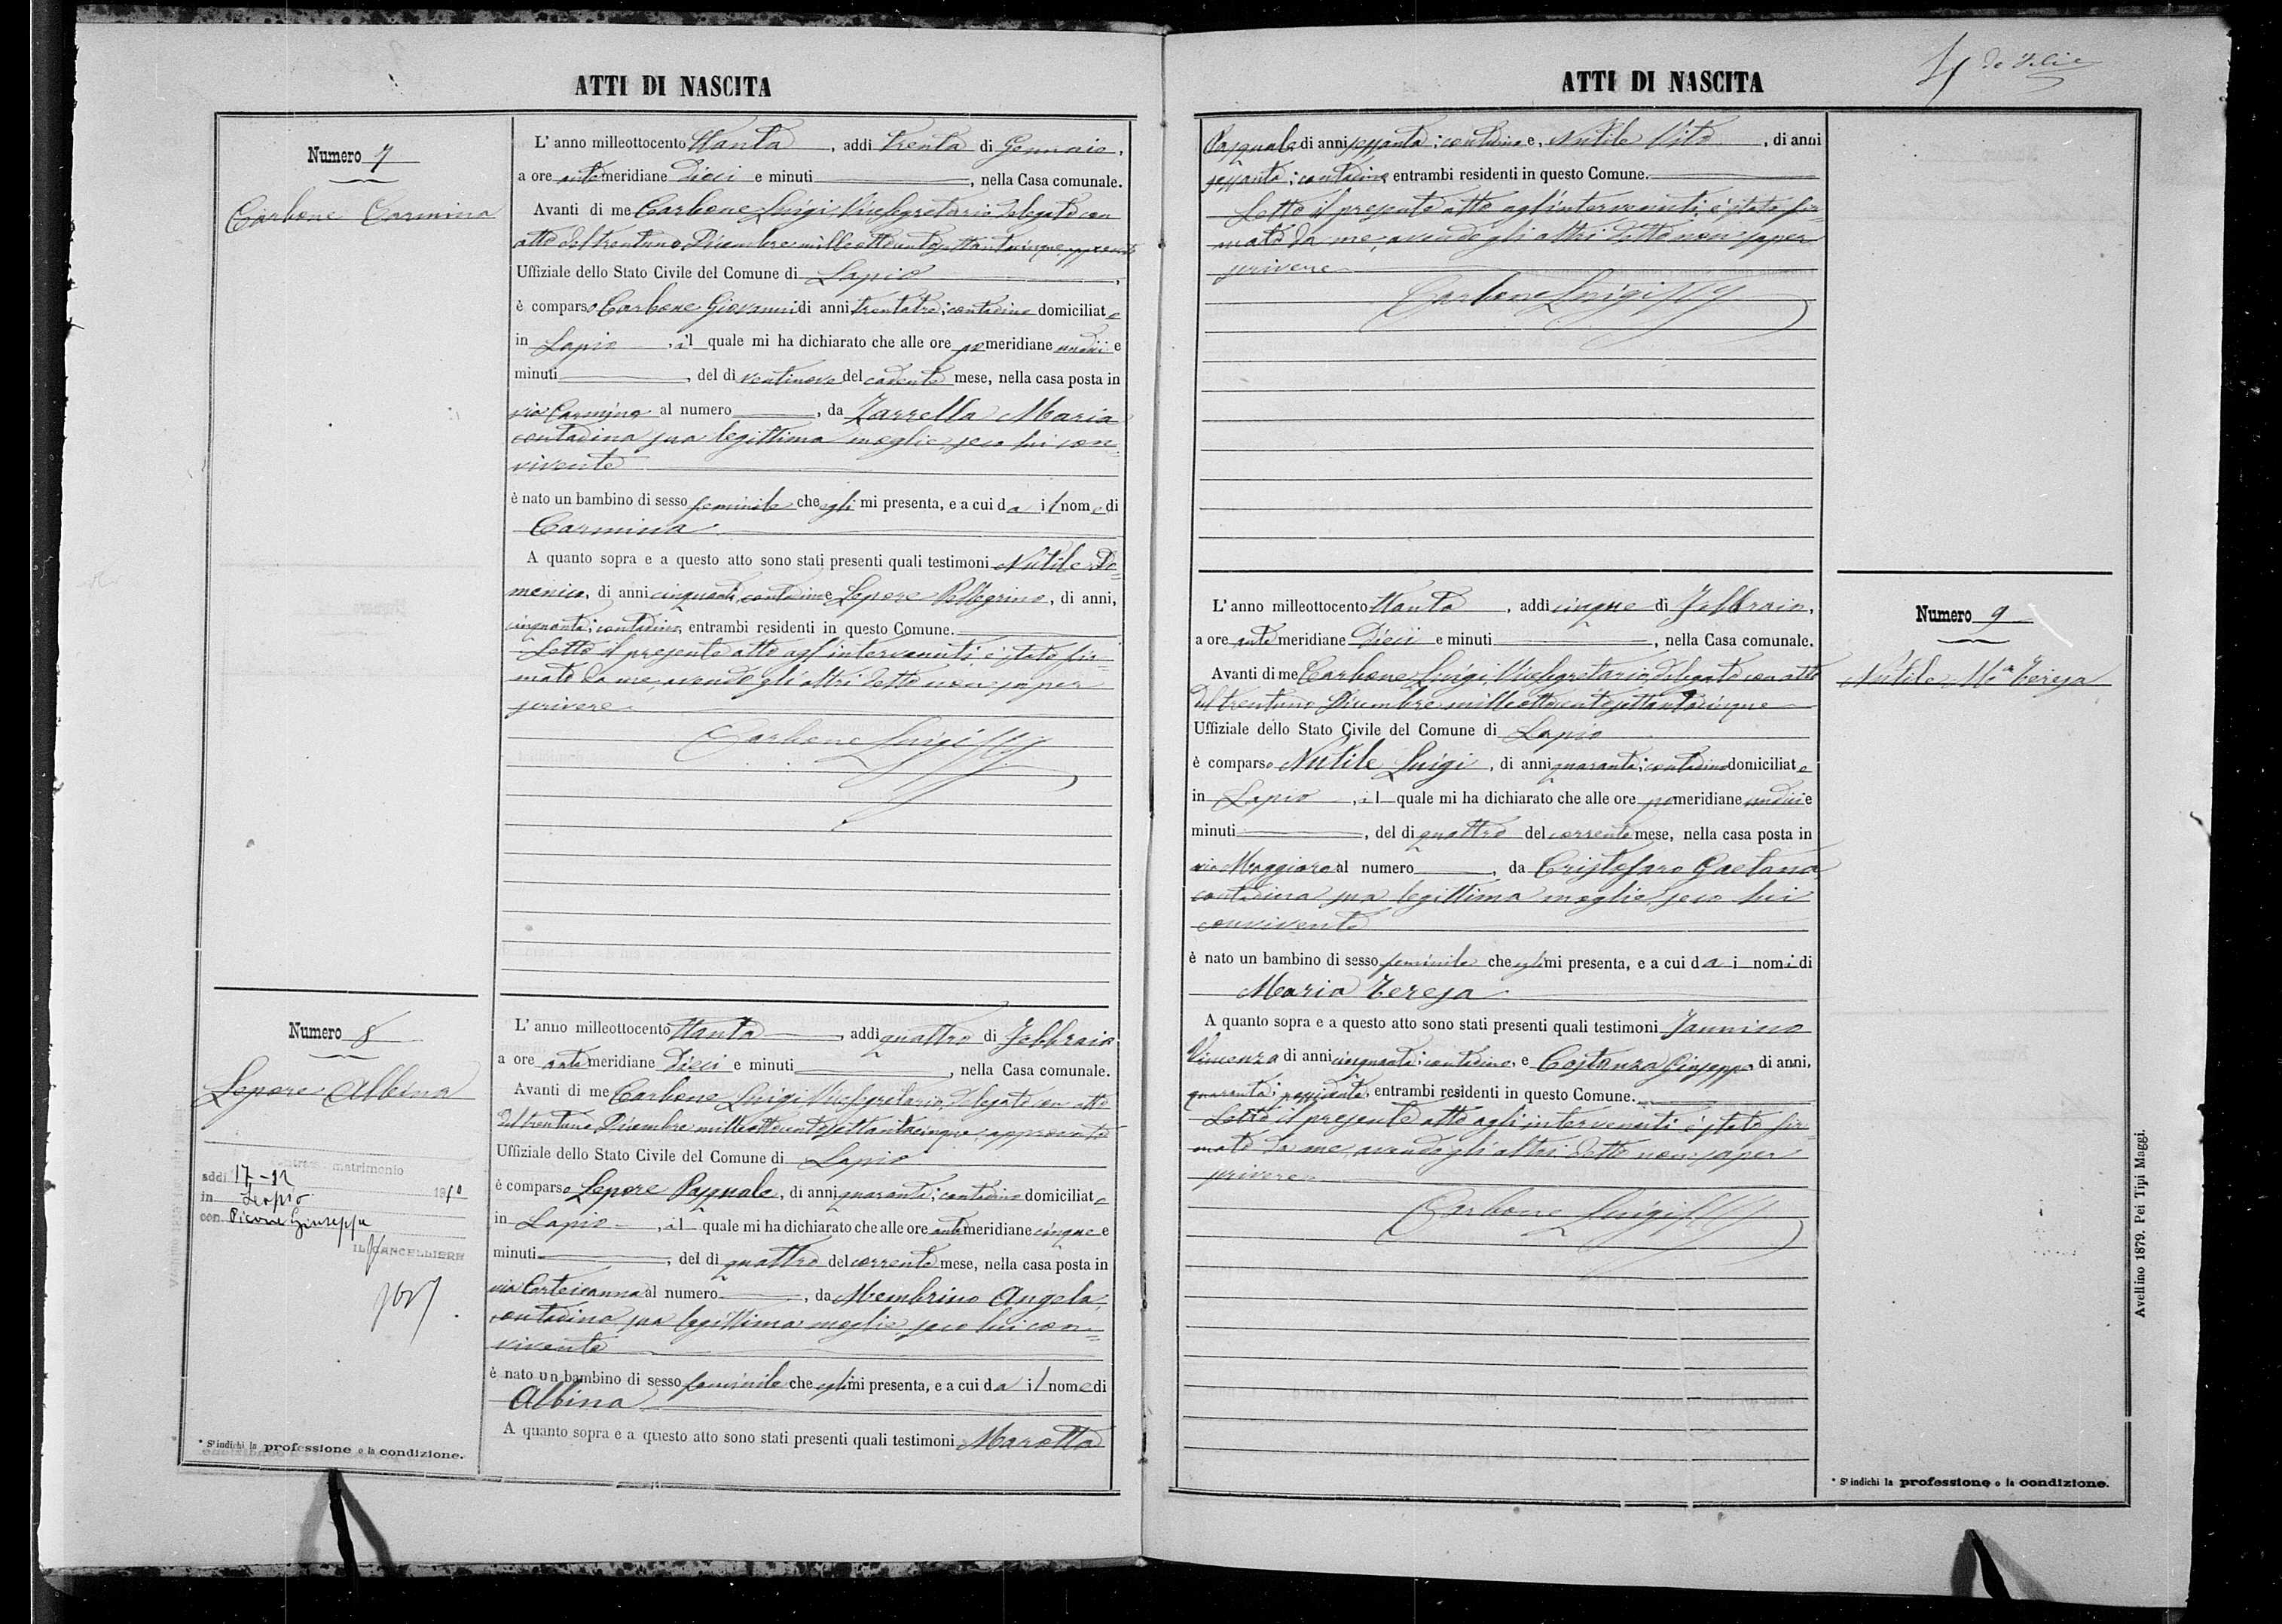 ATTI DI NASCITA
Numero 7
Carbone Carmina
L'anno milleottocento ttanta, addi trenta di Gennaio,
a ore antimeridiane dieci e minuti, nella Casa comunale.
Avanti di me Carbone Luigi Vicesegretario delegato con
atto del trentuno Dicembre milleottocentosettantacinque approvato
Uffiziale dello Stato Civile del Comune di Lapio
è comparso Carbone Giovanni di anni trentatre; contadino domiciliato
in Lapio, il quale mi ha dichiarato che alle ore pomeridiane undici e
minuti, del dì ventinove del cadente mese, nella casa posta in
via Carmine al numero, da Zarrella Maria
contadina sua legittima moglie, seco lui con=
vivente
è nato un bambino di sesso feminile che egli mi presenta, e a cui da il nome di
Carmina
A quanto sopra e a questo atto sono stati presenti quali testimoni Nutile Do=
menico, di anni cinquanta, contadino e Lepore Pellegrino, di anni,
cinquanta; contadino, entrambi residenti in questo Comune.
Letto il presente atto agl'intervenuti, è stato fir=
mato da me, avendo gli altri detto non saper
scrivere
Carbone Luigi
Numero 8
Lepore Albina
matrimonio
addi 17-12 1910
in Lapio
con Picone Giuseppe
IL CANCELLIERE
L'anno milleottocento ttanta, addi quattro di Febbraio
a ore antimeridiane dieci e minuti, nella Casa comunale.
Avanti di me Carbone Luigi Vicesegretario delegato con atto
del trentuno Dicembre milleottocentosettantacinque, approvato
Uffiziale dello Stato Civile del Comune di Lapio
è comparso Lepore Pasquale, di anni quaranta; contadino domiciliato
in Lapio, il quale mi ha dichiarato che alle ore antimeridiane cinque e
minuti, del dì quattro del corrente mese, nella casa posta in
via Corteicanna al numero, da Membrino Angela,
contadina sua legittima moglie, seco lui con=
vivente
è nato un bambino di sesso feminile che egli mi presenta, e a cui da il nome di
Albina
A quanto sopra e a questo atto sono stati presenti quali testimoni Marotta
* S'indichi la professione o la condizione.
ATTI DI NASCITA
de Felice
Pasquale di anni sessanta; contadino e, Nutile Vito, di anni
sessanta; contadino, entrambi residenti in questo Comune.
Letto il presente atto agl'intervenuti, è stato fir=
mato da me, avendo gli altri detto non saper
scrivere
Carbone Luigi
Numero 9
Nutile Ma Teresa
L'anno milleottocento ttanta, addi cinque di Febbraio,
a ore antimeridiane dieci e minuti, nella Casa comunale.
Avanti di me Carbone Luigi, Vicesegretario, delegato con atto
del trentuno Dicembre milleottocentosettantacinque
Uffiziale dello Stato Civile del Comune di Lapio
è comparso Nutile Luigi, di anni quaranta; contadino domiciliato
in Lapio, il quale mi ha dichiarato che alle ore pomeridiane undici e
minuti, del dì quattro del corrente mese, nella casa posta in
via Maggiore al numero, da Cristofaro Gaetana
contadina sua legittima moglie, seco lui
convivente
è nato un bambino di sesso feminile che egli mi presenta, e a cui da i nomi di
Maria Teresa
A quanto sopra e a questo atto sono stati presenti quali testimoni Jannino
Vincenzo di anni cinquanta; contadino e Costanza Giuseppe, di anni,
quaranta; possidente, entrambi residenti in questo Comune.
Letto il presente atto agli intervenuti è stato fir=
mato da me, avendo gli altri detto non saper
scrivere
Carbone Luigi
* S'indichi la professione o la condizione.
Avellino 1879. Pei Tipi Maggi.